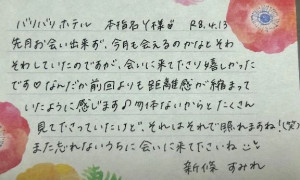 バリバリホテル 本指名Y様 R8.4.13
先月お会い出来ず、今月も会えるのかなとそわ
そわしていたのですが、会いに来て下さり嬉しかった
です♡なんだか前回よりも距離感が縮まって
いたように感じます♪勿体ないからとたくさん
見て下さっていたけど、それはそれで照れますね!(笑)
また忘れないうちに会いに来て下さいね
新條 すみれ